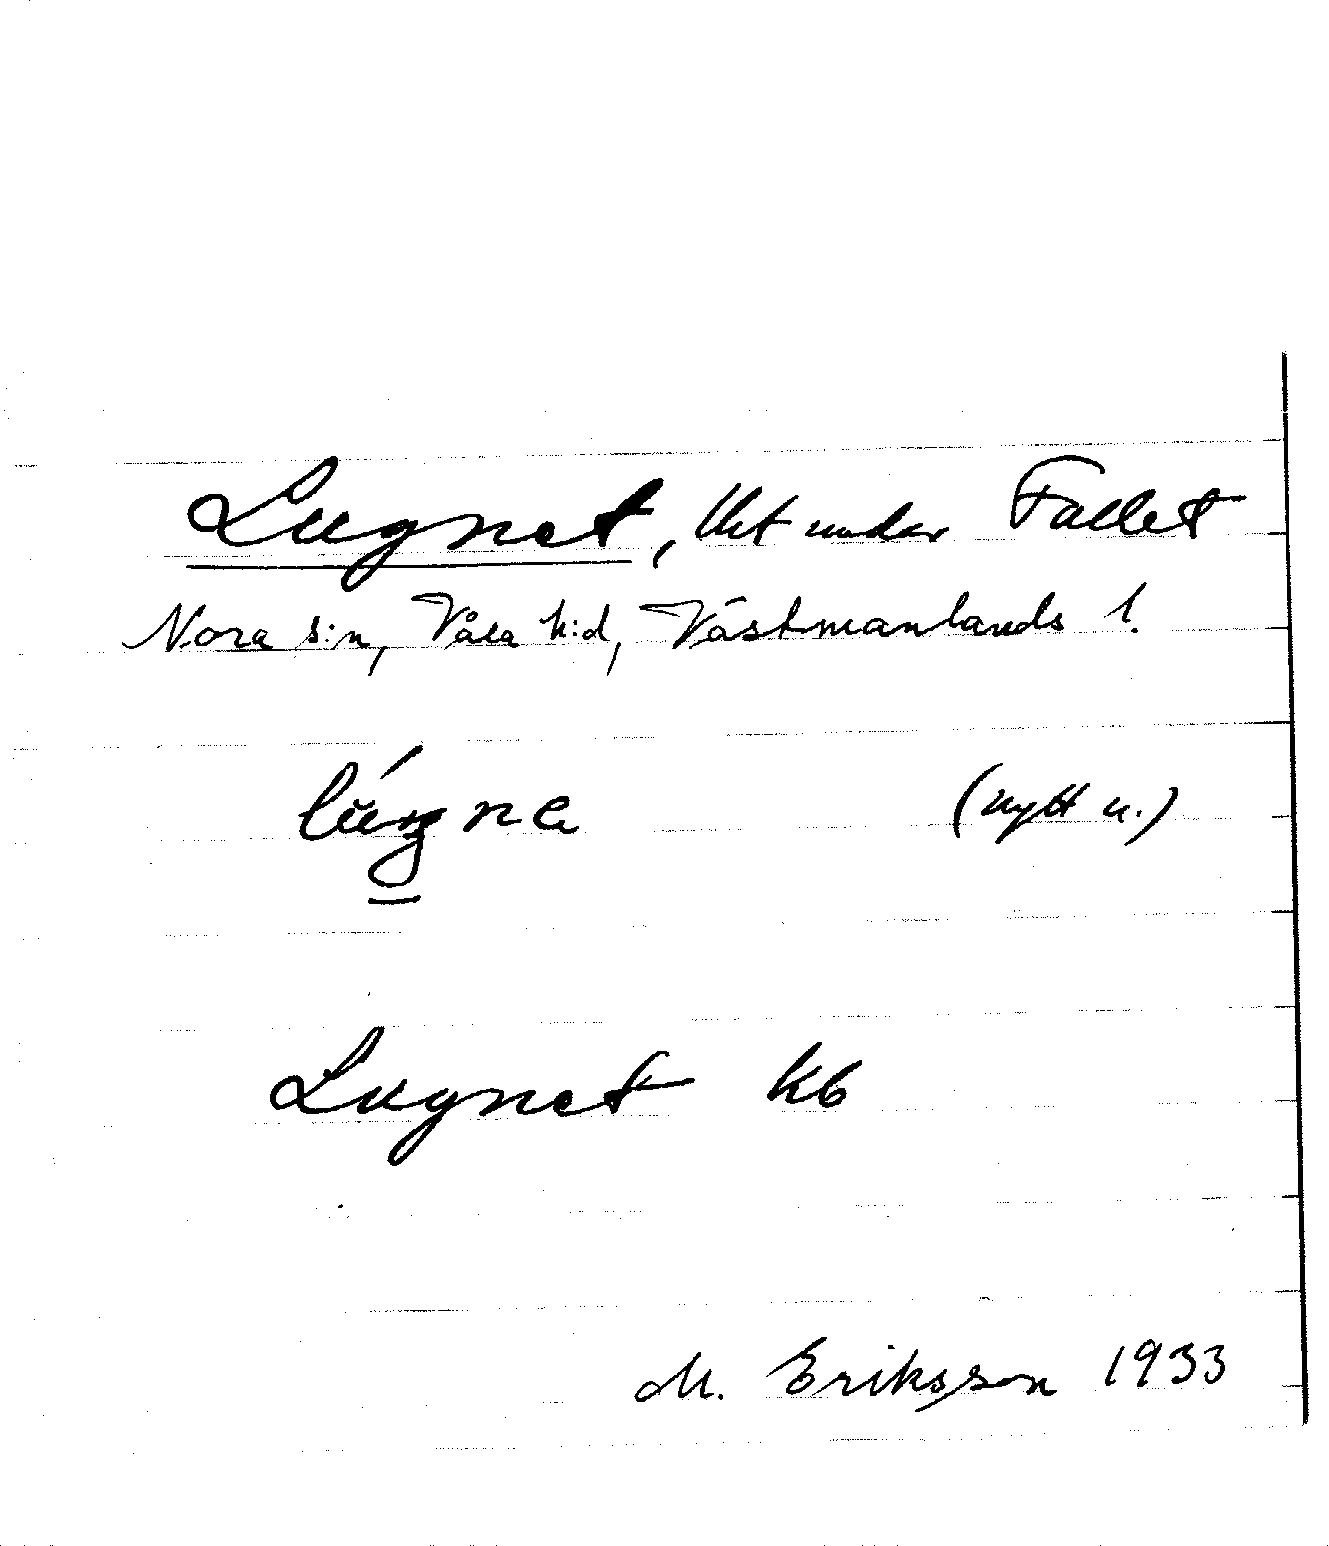 Lugnet, lht under Fallet
Nora s:n, Våla h:d, Västmanlands l.
(nytt n.)
Lugnet kb
M. Eriksson 1933